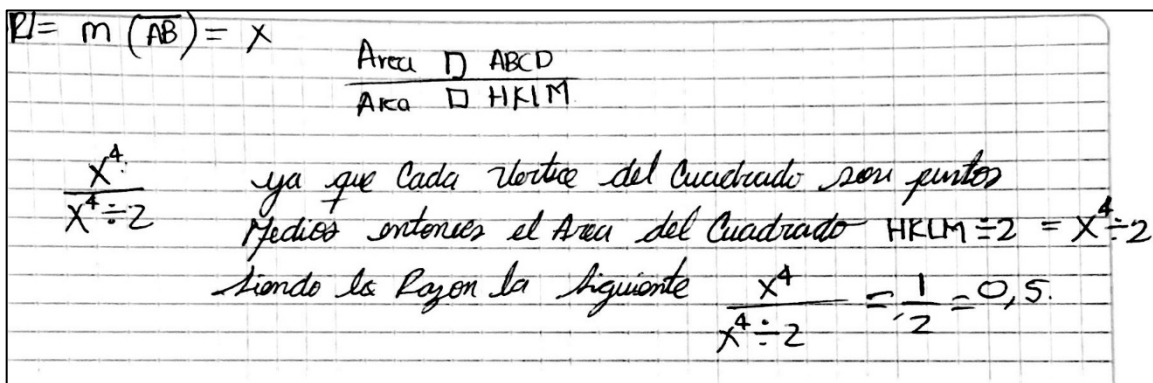 R/= m (AB) = x
Area □ ABCD
Area □ HKLM
x⁴
x⁴÷2
ya que Cada Vertice del Cuadrado son puntos
Medios entonces el Area del Cuadrado HKLM÷2 = x⁴÷2
Siendo la Razon la Siguiente x⁴ / x⁴÷2 = 1/2 = 0,5.